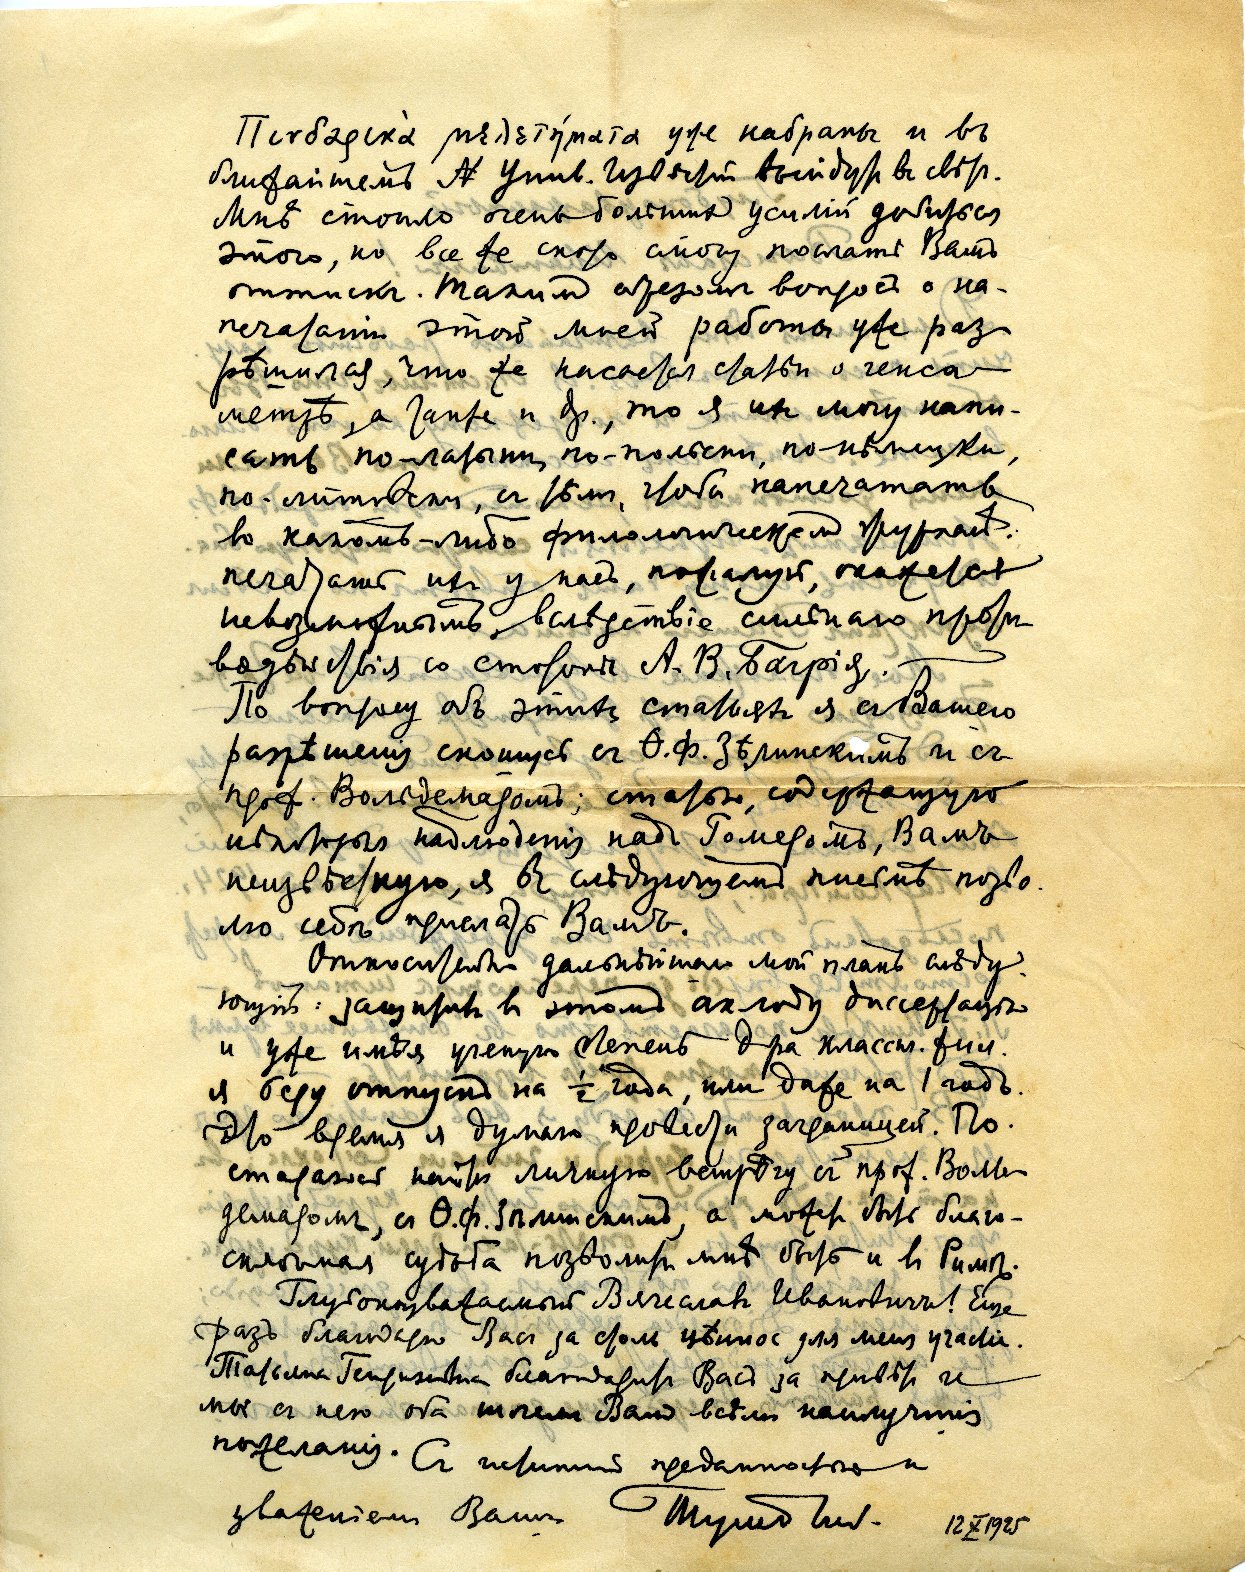 Πινδαρικὰ μελετήματα уже набраны и въ
ближайшемъ № Унив. Извѣстій выйдутъ въ свѣтъ.
Мнѣ стоило очень большихъ усилій добиться
этого, но все же скоро смогу послать Вамъ
оттискъ. Такимъ образомъ вопросъ о на-
печатаніи этой моей работы уже раз
рѣшился, что же касается статьи о гекса
метрѣ, а также и др., то я ихъ могу напи-
сать по-латыни, по-польски, по-нѣмецки,
по-литовски, съ тѣмъ, чтобы напечатать
въ какомъ-либо филологическомъ журналѣ:
печатать ихъ у насъ, пожалуй, окажется
невозможнымъ, вслѣдствіе сильнаго проти
водѣйствія со стороны А. В. Багрія.
По вопросу объ этихъ статьяхъ я съ Вашего
разрѣшенія снощусь съ Ѳ. Ф. Зѣлинскимъ и съ
проф. Вольдемаромъ; статью, содержащую
нѣкоторыя наблюденія надъ Гомеромъ, Вамъ
неизвѣстную, я въ слѣдующемъ письмѣ позво-
лю себѣ прислать Вамъ.
Относительно дальнѣйшаго мой планъ слѣду
ющій: защитивъ въ этомъ ак. году диссертацію
и уже имѣя ученую степень д-ра классич. фил.
я беру отпускъ на ½ года, или даже на 1 годъ.
Это время я думаю провести заграницей. По-
стараюсь найти личную встрѣчу съ проф. Воль
демаромъ, съ Ѳ. Ф. Зѣлинскимъ, а можетъ быть благо-
склонная судьба позволитъ мнѣ быть и въ Римѣ.
Глубокоуважаемый Вячеславъ Ивановичъ! Еще
разъ благодарю Васъ за столь цѣнное для меня участіе.
Татьяна Генриховна благодаритъ Васъ за привѣтъ и
мы съ нею оба шлемъ Вамъ всѣмъ наилучшія
пожеланія. Съ истинной преданностью и
уваженіемъ Вашъ
12 X 1925